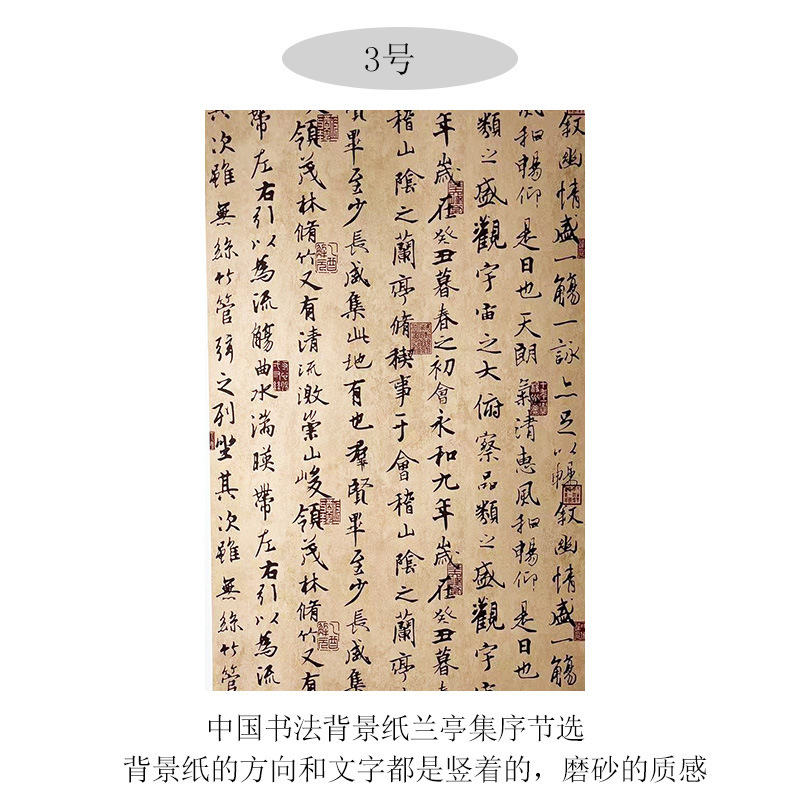 3号
叙幽情盛一觴一詠亦足以暢叙幽情盛一觴
風和暢仰是日也天朗氣清惠風和暢仰是日也
類之盛觀宇宙之大俯察品類之盛觀宇
年歲在癸丑暮春之初會永和九年歲在癸丑暮
稽山陰之蘭亭脩稧事于會稽山陰之蘭亭
賢畢至少長咸集此地有也羣賢畢至少長咸集
領茂林脩竹又有清流激崇山峻領茂林脩竹又有
帶左右引以為流觴曲水滿暎帶左右引以為流
其次雖無絲竹管弦之列坐其次雖無絲竹管
中国书法背景纸兰亭集序节选
背景纸的方向和文字都是竖着的，磨砂的质感